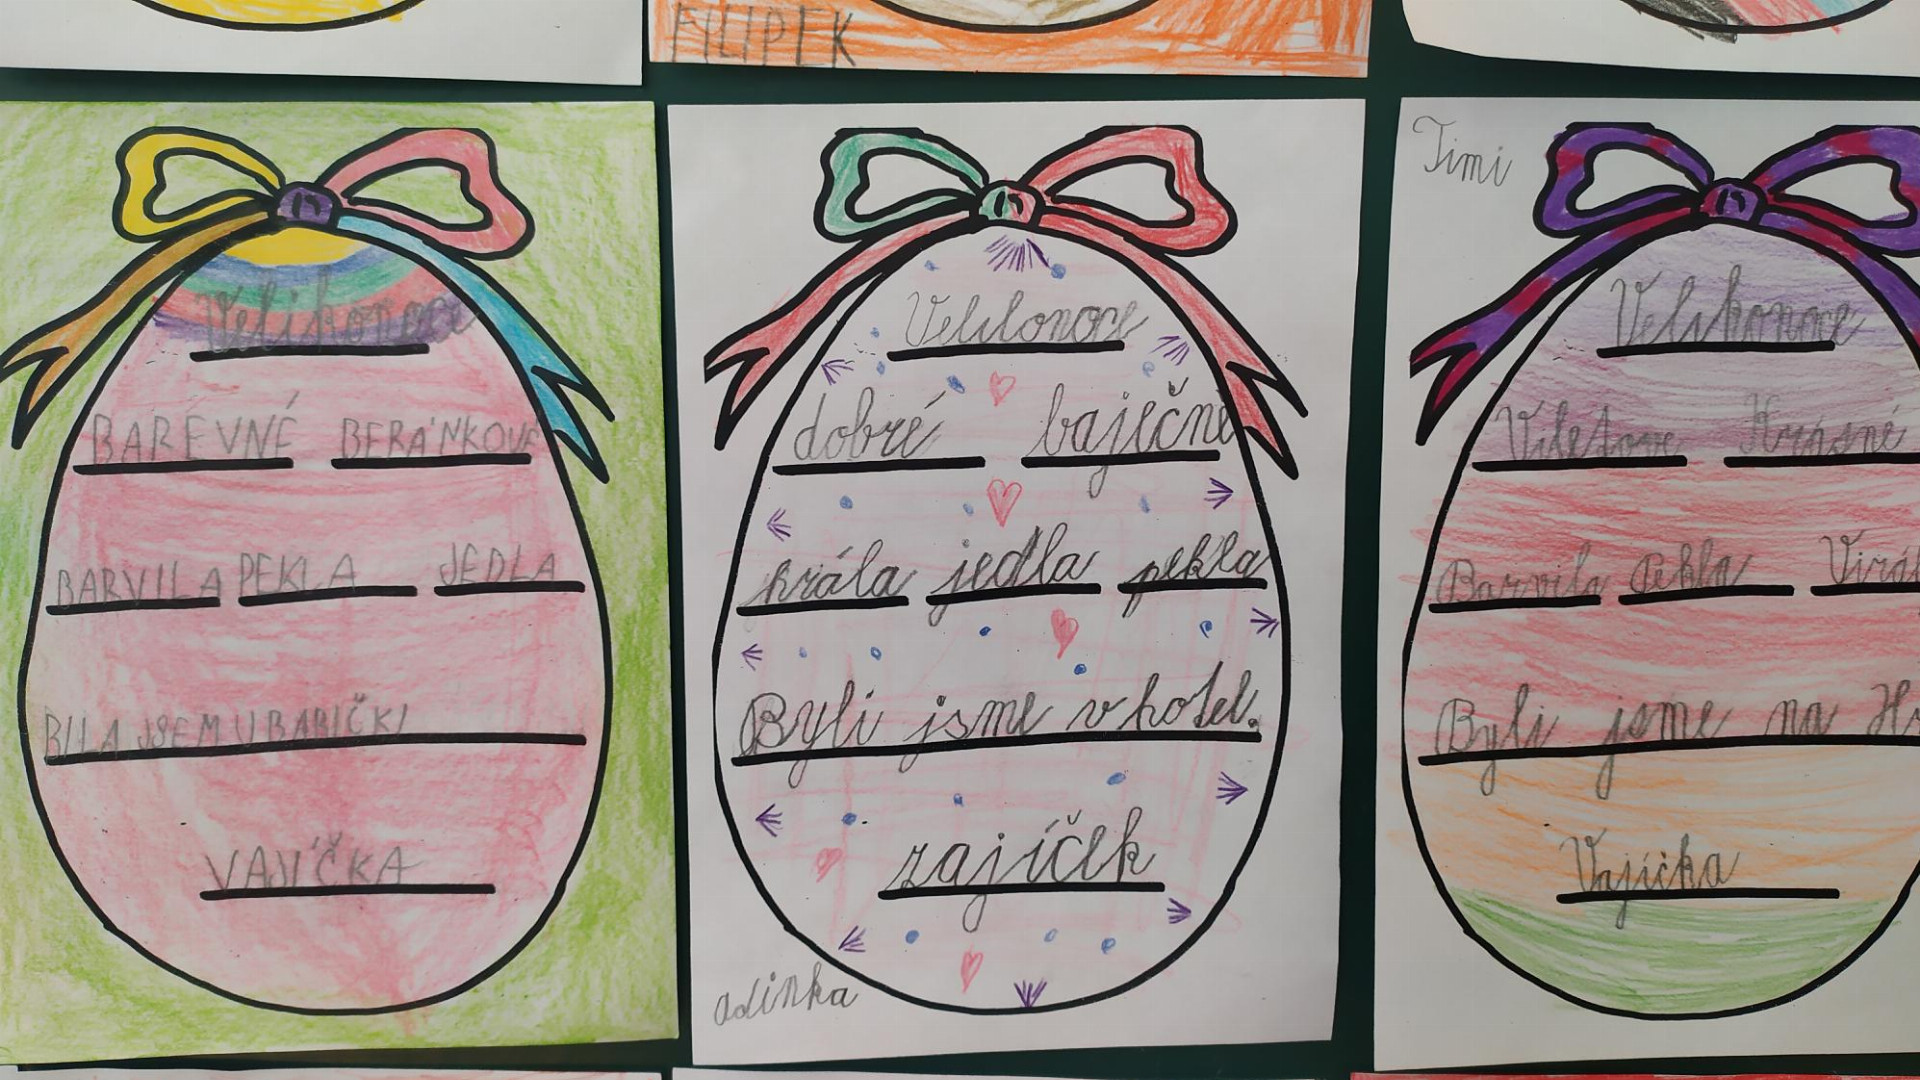 FILIPEK
Velikonoce
BAREVNÉ BERÁNKOVÉ
BARVILA PEKLA JEDLA
BILA JSEM U BABIČKI
VAJÍČKA
Velikonoce
dobré báječné
hrála jedla pekla
Byli jsme v hotel.
zajíček
adinka
Timi
Velikonoce
Krásné
Barvila Pekla
Byli jsme na
Vajíčka